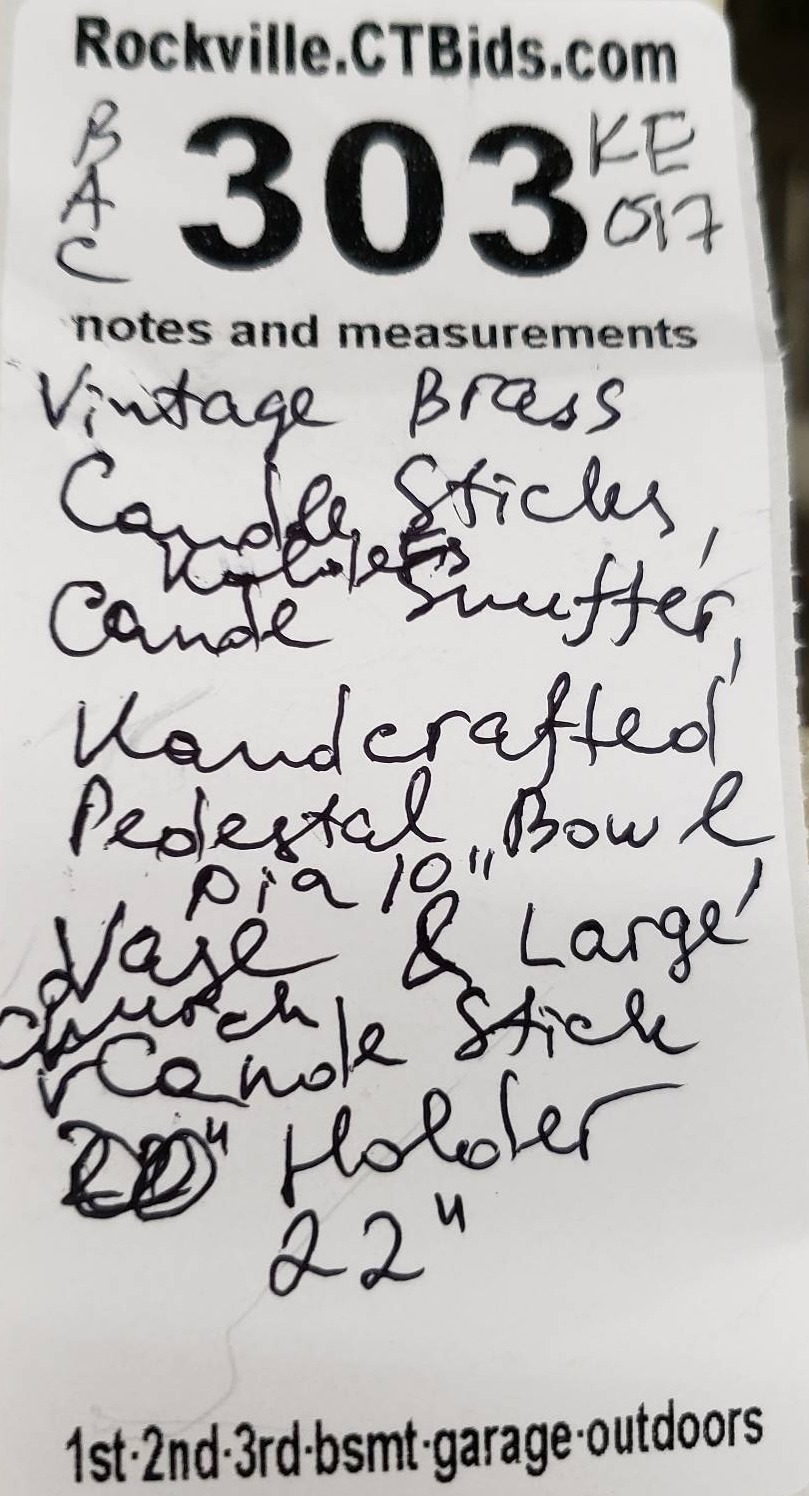 Rockville.CTBids.com
BAC 303 KE 017
notes and measurements
Vintage Brass
Candle Sticks,
Holders
Cande Snuffer,
Handcrafted
Pedestal Bowl,
Dia 10"
Vase & Large
Church
Candle Stick
Holder
22"
1st·2nd·3rd·bsmt·garage·outdoors